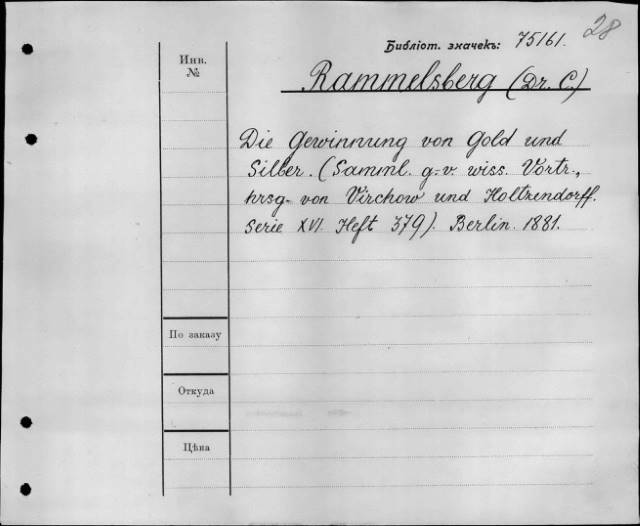 28
Библіот. значекъ: 75161.
Инв.
№
Rammelsberg (Dr. C.)
Die Gewinnung von Gold und
Silber. (Samml. g.-v. wiss. Vortr.,
hrsg. von Virchow und Holtzendorff.
Serie XVI. Heft 379). Berlin. 1881.
По заказу
Откуда
Цѣна